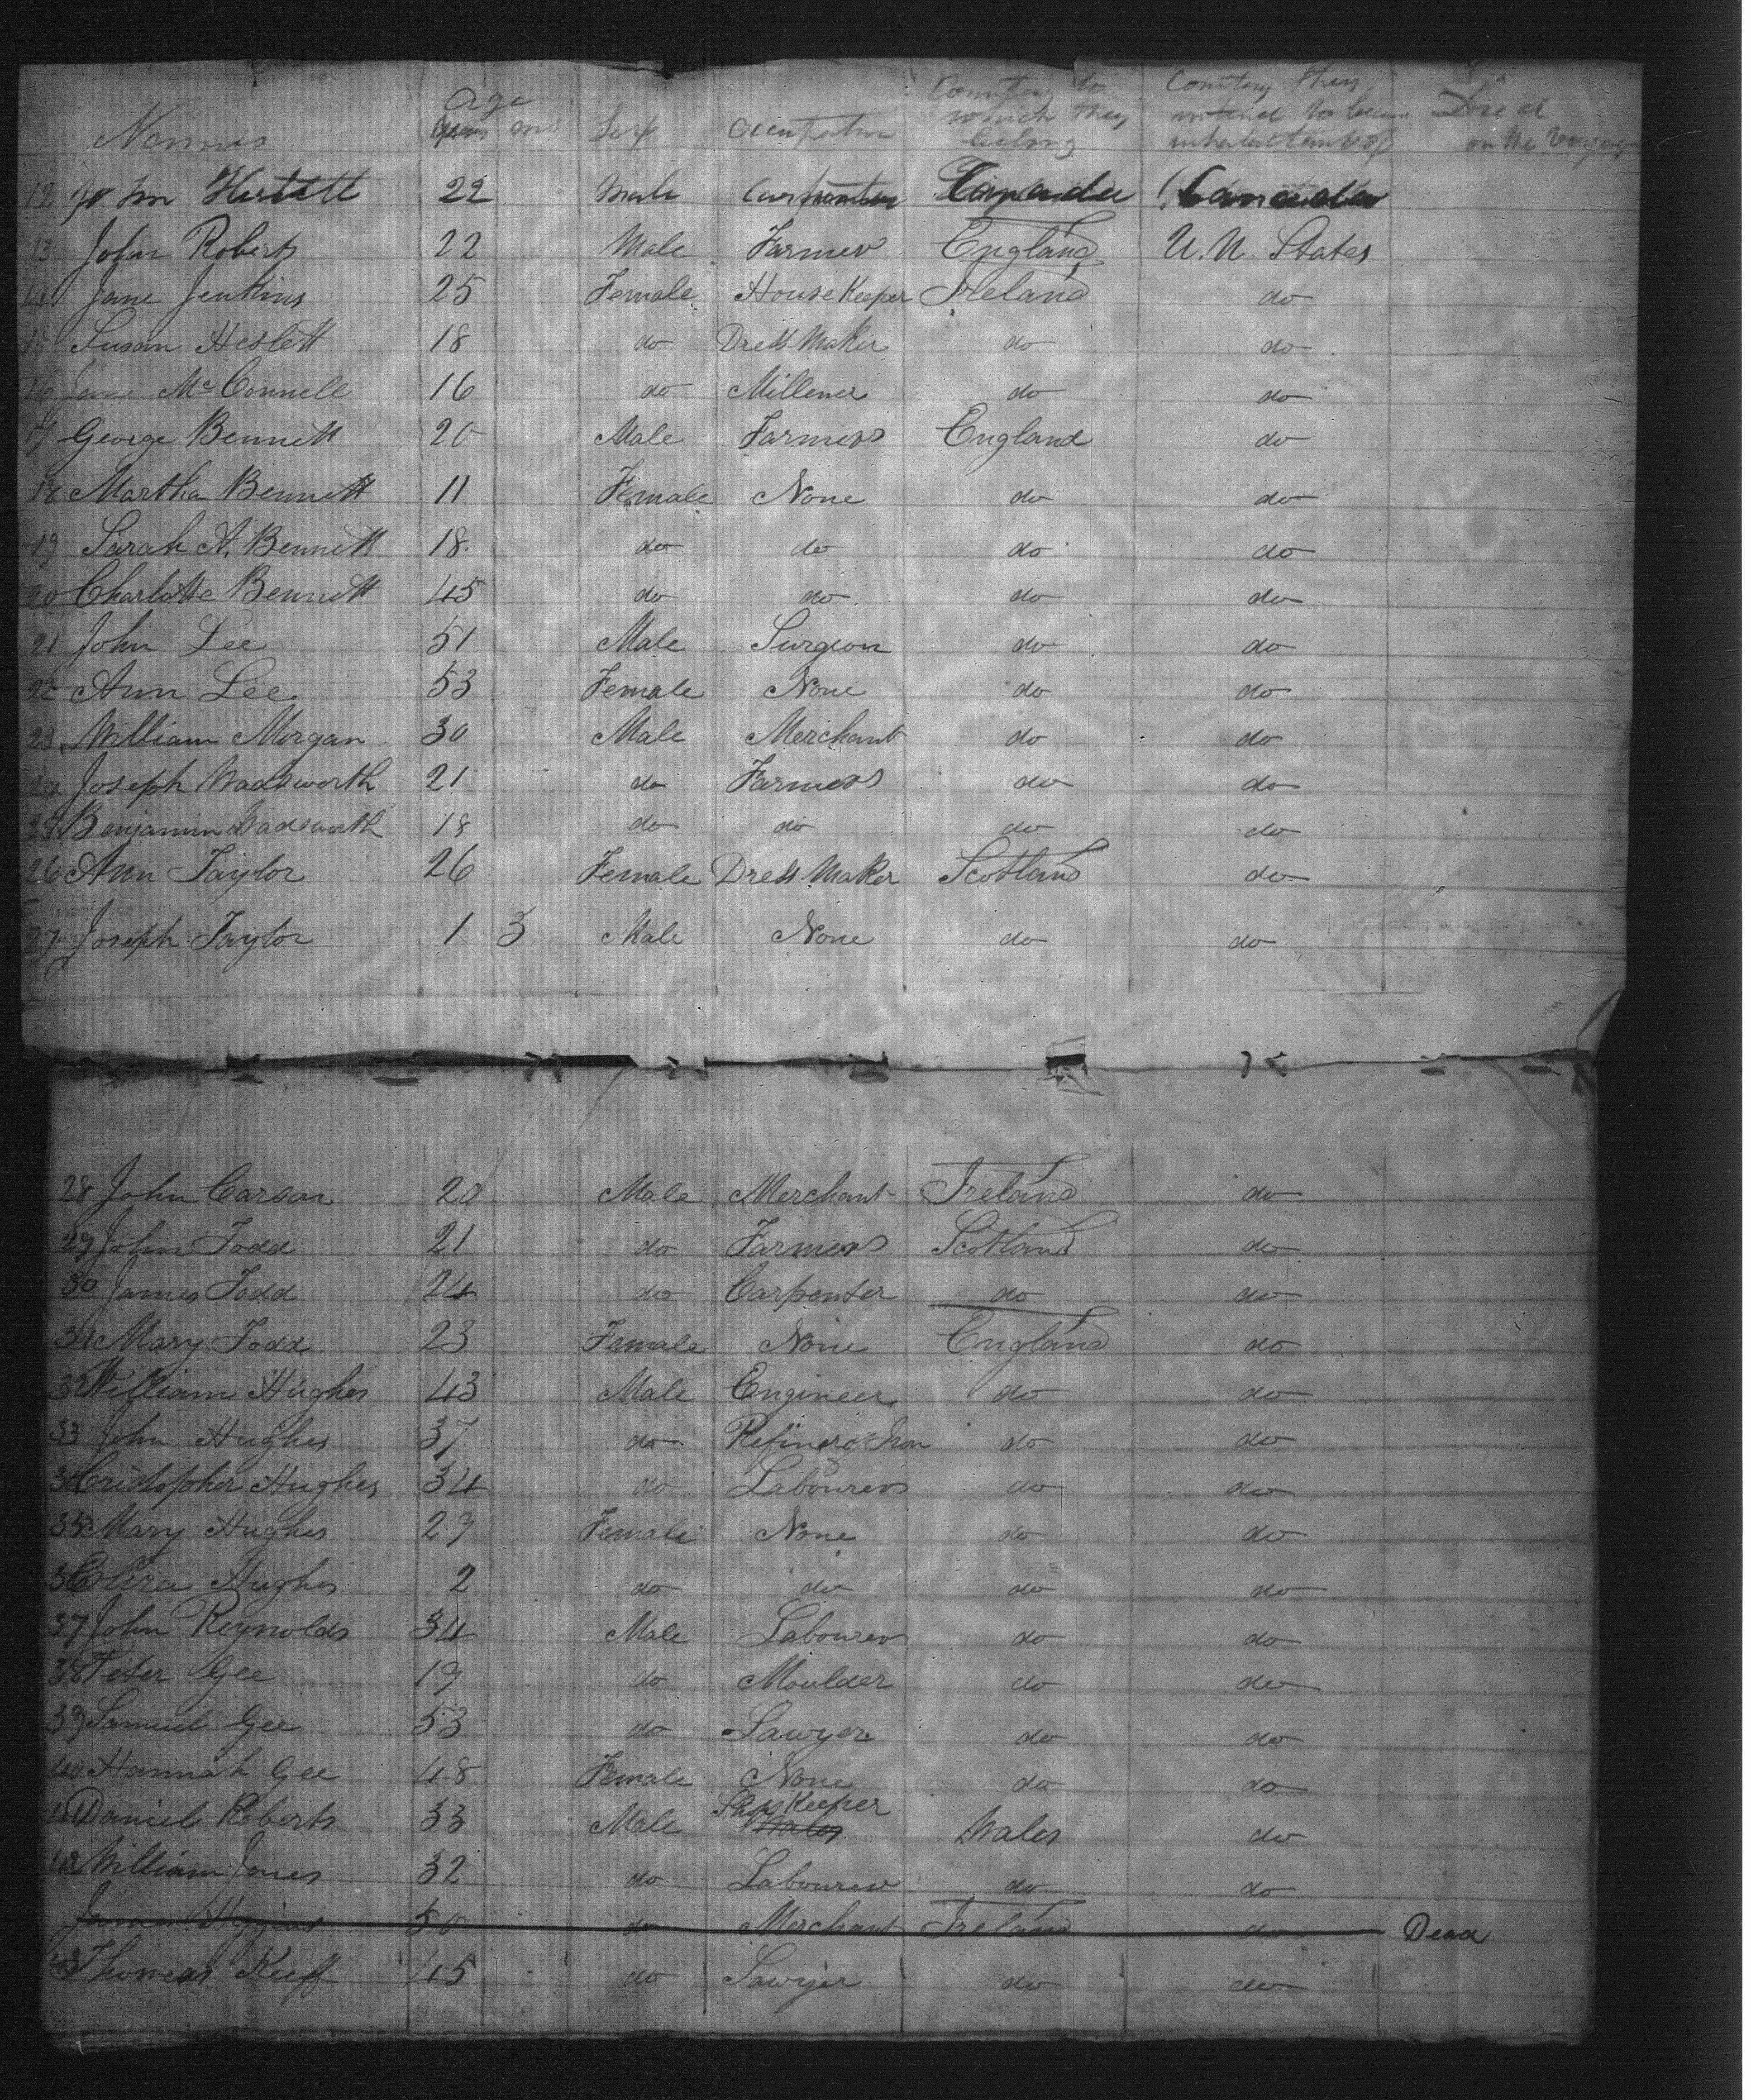 Names Age years ms Sex Occupation Country to which they belong Country they intend to become inhabitants of Died on the Voyage
12 John 22 Male Carpenter Canada Canada
13 John Roberts 22 Male Farmer England U. N. States
14 Jane Jenkins 25 Female House Keeper Ireland do
15 Susan Heslett 18 do Dress Maker do do
16 Jane McConnell 16 do Millener do do
17 George Bennett 20 Male Farmer England do
18 Martha Bennett 11 Female None do do
19 Sarah A. Bennett 18 do do do do
20 Charlotte Bennett 45 do do do do
21 John Lee 51 Male Surgeon do do
22 Ann Lee 53 Female None do do
23 William Morgan 30 Male Merchant do do
24 Joseph Wadsworth 21 do Farmer do do
25 Benjamin Wadsworth 18 do do do do
26 Ann Taylor 26 Female Dress Maker Scotland do
27 Joseph Taylor 1 3 Male None do do
28 John Carson 20 Male Merchant Ireland do
29 John Todd 21 do Farmer Scotland do
30 James Todd 24 do Carpenter do do
31 Mary Todd 23 Female None England do
32 William Hughes 43 Male Engineer do do
33 John Hughes 37 do Refiner of Iron do do
34 Cristopher Hughes 34 do Labourer do do
35 Mary Hughes 29 Female None do do
36 Eliza Hughes 2 do do do do
37 John Reynolds 34 Male Labourer do do
38 Peter Gee 19 do Moulder do do
39 Samuel Gee 53 do Sawyer do do
40 Hannah Gee 48 Female None do do
41 Daniel Roberts 33 Male Shop Keeper Wales Wales do
42 William Jones 32 do Labourer do do
James Higgins 50 do Merchant Ireland do Dead
43 Thomas Keeff 45 do Sawyer do do